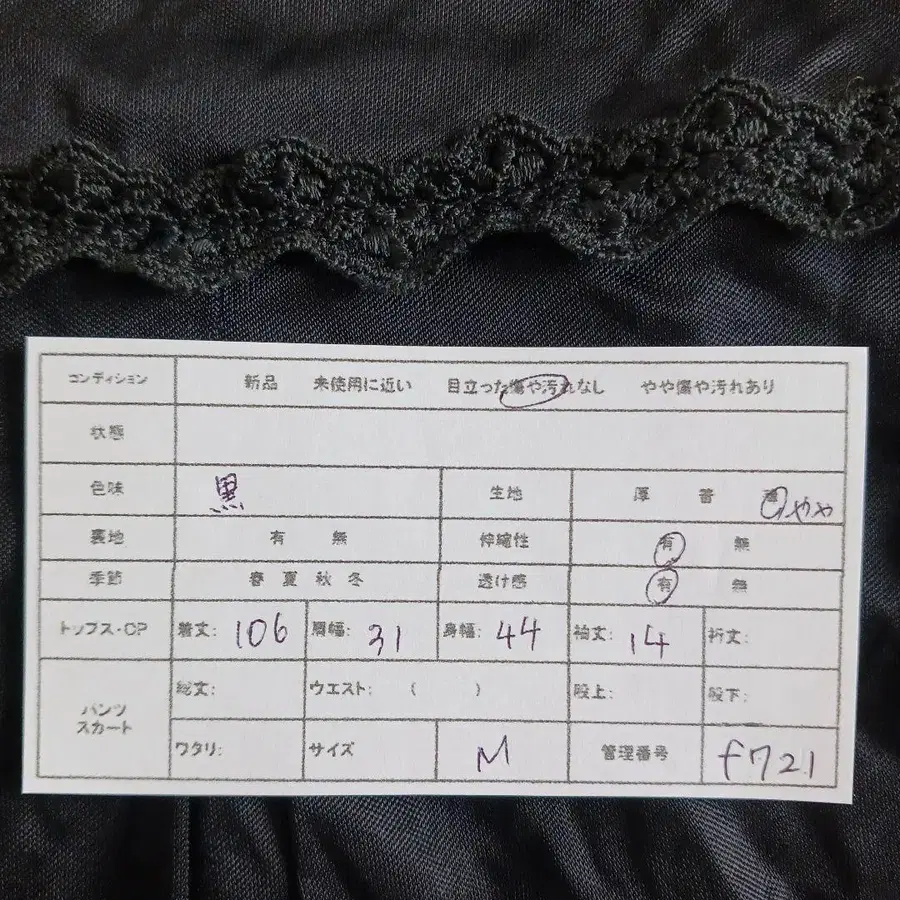 コンディション 新品 未使用に近い 目立った傷や汚れなし やや傷や汚れあり
状態
色味 黒 生地 厚 普 薄 やや
裏地 有 無 伸縮性 有 無
季節 春 夏 秋 冬 透け感 有 無
トップス・OP 着丈: 106 肩幅: 31 身幅: 44 袖丈: 14 裄丈:
パンツ
スカート
総丈: ウエスト: ( ) 股上: 股下:
ワタリ: サイズ M 管理番号 f721